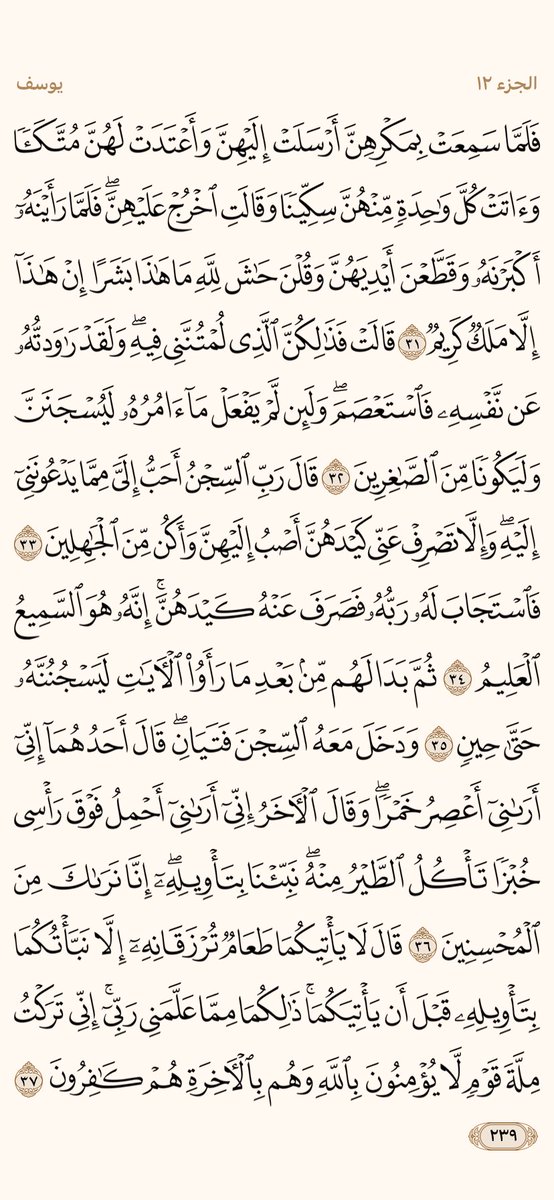 الجزء ١٢
يوسف
فَلَمَّا سَمِعَتْ بِمَكْرِهِنَّ أَرْسَلَتْ إِلَيْهِنَّ وَأَعْتَدَتْ لَهُنَّ مُتَّكَـًٔا
وَءَاتَتْ كُلَّ وَٰحِدَةٍ مِّنْهُنَّ سِكِّينًا وَقَالَتِ ٱخْرُجْ عَلَيْهِنَّ ۖ فَلَمَّا رَأَيْنَهُۥٓ
أَكْبَرْنَهُۥ وَقَطَّعْنَ أَيْدِيَهُنَّ وَقُلْنَ حَٰشَ لِلَّهِ مَا هَٰذَا بَشَرًا إِنْ هَٰذَآ
إِلَّا مَلَكٌ كَرِيمٌ ٣١ قَالَتْ فَذَٰلِكُنَّ ٱلَّذِى لُمْتُنَّنِى فِيهِ ۖ وَلَقَدْ رَٰوَدتُّهُۥ
عَن نَّفْسِهِۦ فَٱسْتَعْصَمَ ۖ وَلَئِن لَّمْ يَفْعَلْ مَآ ءَامُرُهُۥ لَيُسْجَنَنَّ
وَلَيَكُونًا مِّنَ ٱلصَّٰغِرِينَ ٣٢ قَالَ رَبِّ ٱلسِّجْنُ أَحَبُّ إِلَىَّ مِمَّا يَدْعُونَنِىٓ
إِلَيْهِ ۖ وَإِلَّا تَصْرِفْ عَنِّى كَيْدَهُنَّ أَصْبُ إِلَيْهِنَّ وَأَكُن مِّنَ ٱلْجَٰهِلِينَ ٣٣
فَٱسْتَجَابَ لَهُۥ رَبُّهُۥ فَصَرَفَ عَنْهُ كَيْدَهُنَّ ۚ إِنَّهُۥ هُوَ ٱلسَّمِيعُ
ٱلْعَلِيمُ ٣٤ ثُمَّ بَدَا لَهُم مِّنۢ بَعْدِ مَا رَأَوُا۟ ٱلْـَٔايَٰتِ لَيَسْجُنُنَّهُۥ
حَتَّىٰ حِينٍ ٣٥ وَدَخَلَ مَعَهُ ٱلسِّجْنَ فَتَيَانِ ۖ قَالَ أَحَدُهُمَآ إِنِّىٓ
أَرَىٰنِىٓ أَعْصِرُ خَمْرًا ۖ وَقَالَ ٱلْـَٔاخَرُ إِنِّىٓ أَرَىٰنِىٓ أَحْمِلُ فَوْقَ رَأْسِى
خُبْزًا تَأْكُلُ ٱلطَّيْرُ مِنْهُ ۖ نَبِّئْنَا بِتَأْوِيلِهِۦٓ ۖ إِنَّا نَرَىٰكَ مِنَ
ٱلْمُحْسِنِينَ ٣٦ قَالَ لَا يَأْتِيكُمَا طَعَامٌ تُرْزَقَانِهِۦٓ إِلَّا نَبَّأْتُكُمَا
بِتَأْوِيلِهِۦ قَبْلَ أَن يَأْتِيَكُمَا ۚ ذَٰلِكُمَا مِمَّا عَلَّمَنِى رَبِّىٓ ۚ إِنِّى تَرَكْتُ
مِلَّةَ قَوْمٍ لَّا يُؤْمِنُونَ بِٱللَّهِ وَهُم بِٱلْـَٔاخِرَةِ هُمْ كَٰفِرُونَ ٣٧
٢٣٩